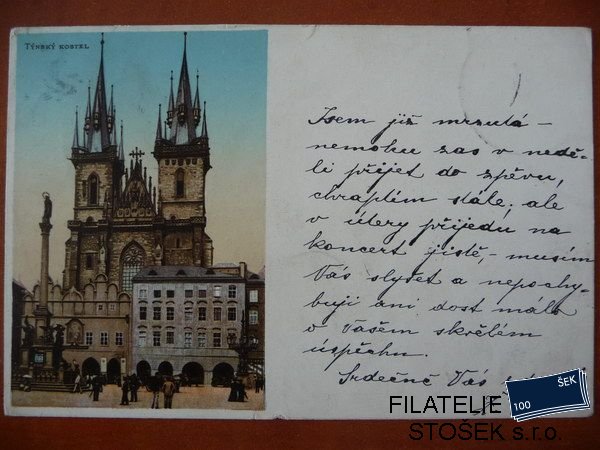 TÝNSKÝ KOSTEL
Jsem již mrzutá –
nemohu zas v nedě-
li přijet do zpěvu,
chraptím stále; ale
v úterý přijedu na
koncert jistě, – musím
Vás slyšet a nepochy-
buji ani dost málo
o Vašem skvělém
úspěchu.
Srdečně Vás
100 ŠEK
FILATELIE
STOŠEK s.r.o.